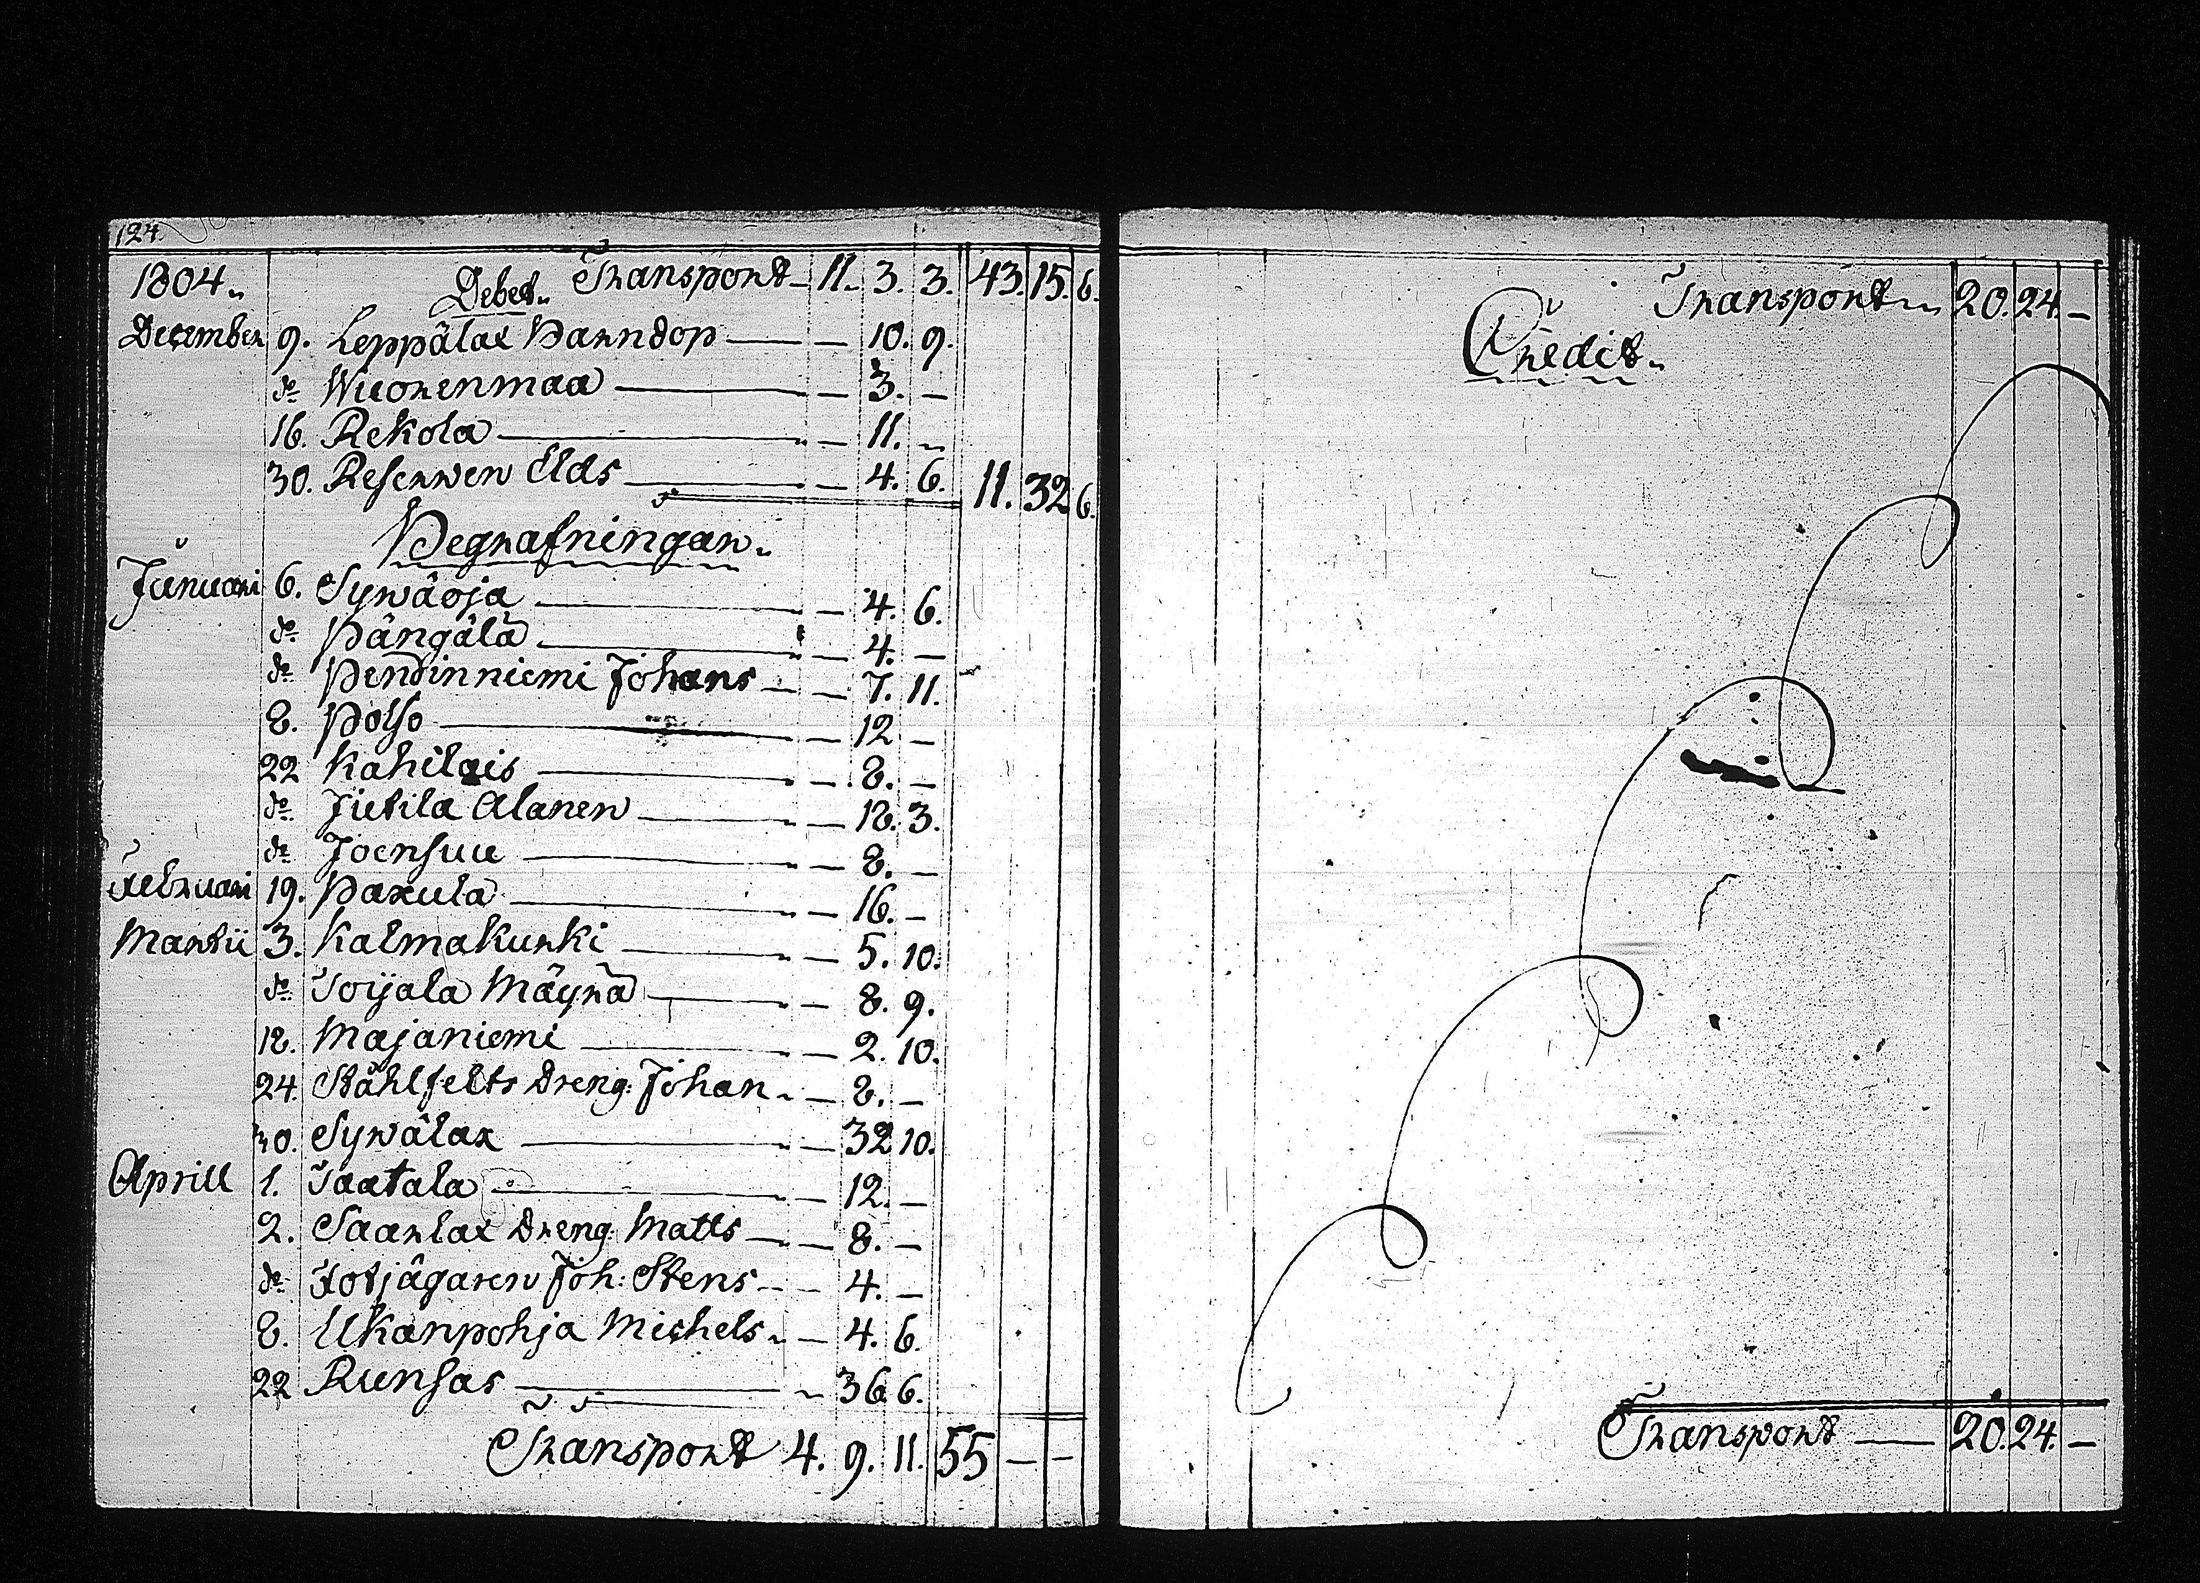 124.
1804. Debet. Transport 11. 3. 3. 43. 15. 6.
December 9. Leppälax Barndop — 10. 9.
do Wuorenmaa — 3. —
16. Rekola — 11. —
30. Reserwen Elds — 4. 6. 11. 32 6.
Begrafningar.
Januari 6. Sywäoja — 4. 6.
do Pängälä — 4. —
do Pendinniemi Johans — 7. 11.
8. Polso — 12 —
22 Kahilais — 8. —
do Jutila Alanen — 18. 3.
do Joensuu — 8. —
Februari 19. Paxula — 16. —
Martii 3. Kalmakurki — 5. 10.
do Toijala Mäyrä — 8. 9.
18. Majaniemi — 2. 10.
24. Ståhlfelts Dreng: Johan — 8. —
30. Sywälax — 32 10.
Aprill 1. Taatala — 12. —
2. Saarlax Dreng: Matts — 8. —
do Fotjägaren Joh: Stens — 4. —
8. Ukanpohja Michels — 4. 6.
22 Runsas — 36 6.
Transport 4. 9. 11. 55 — —
Transport 20. 24. —
Credit.
Transport — 20. 24. —